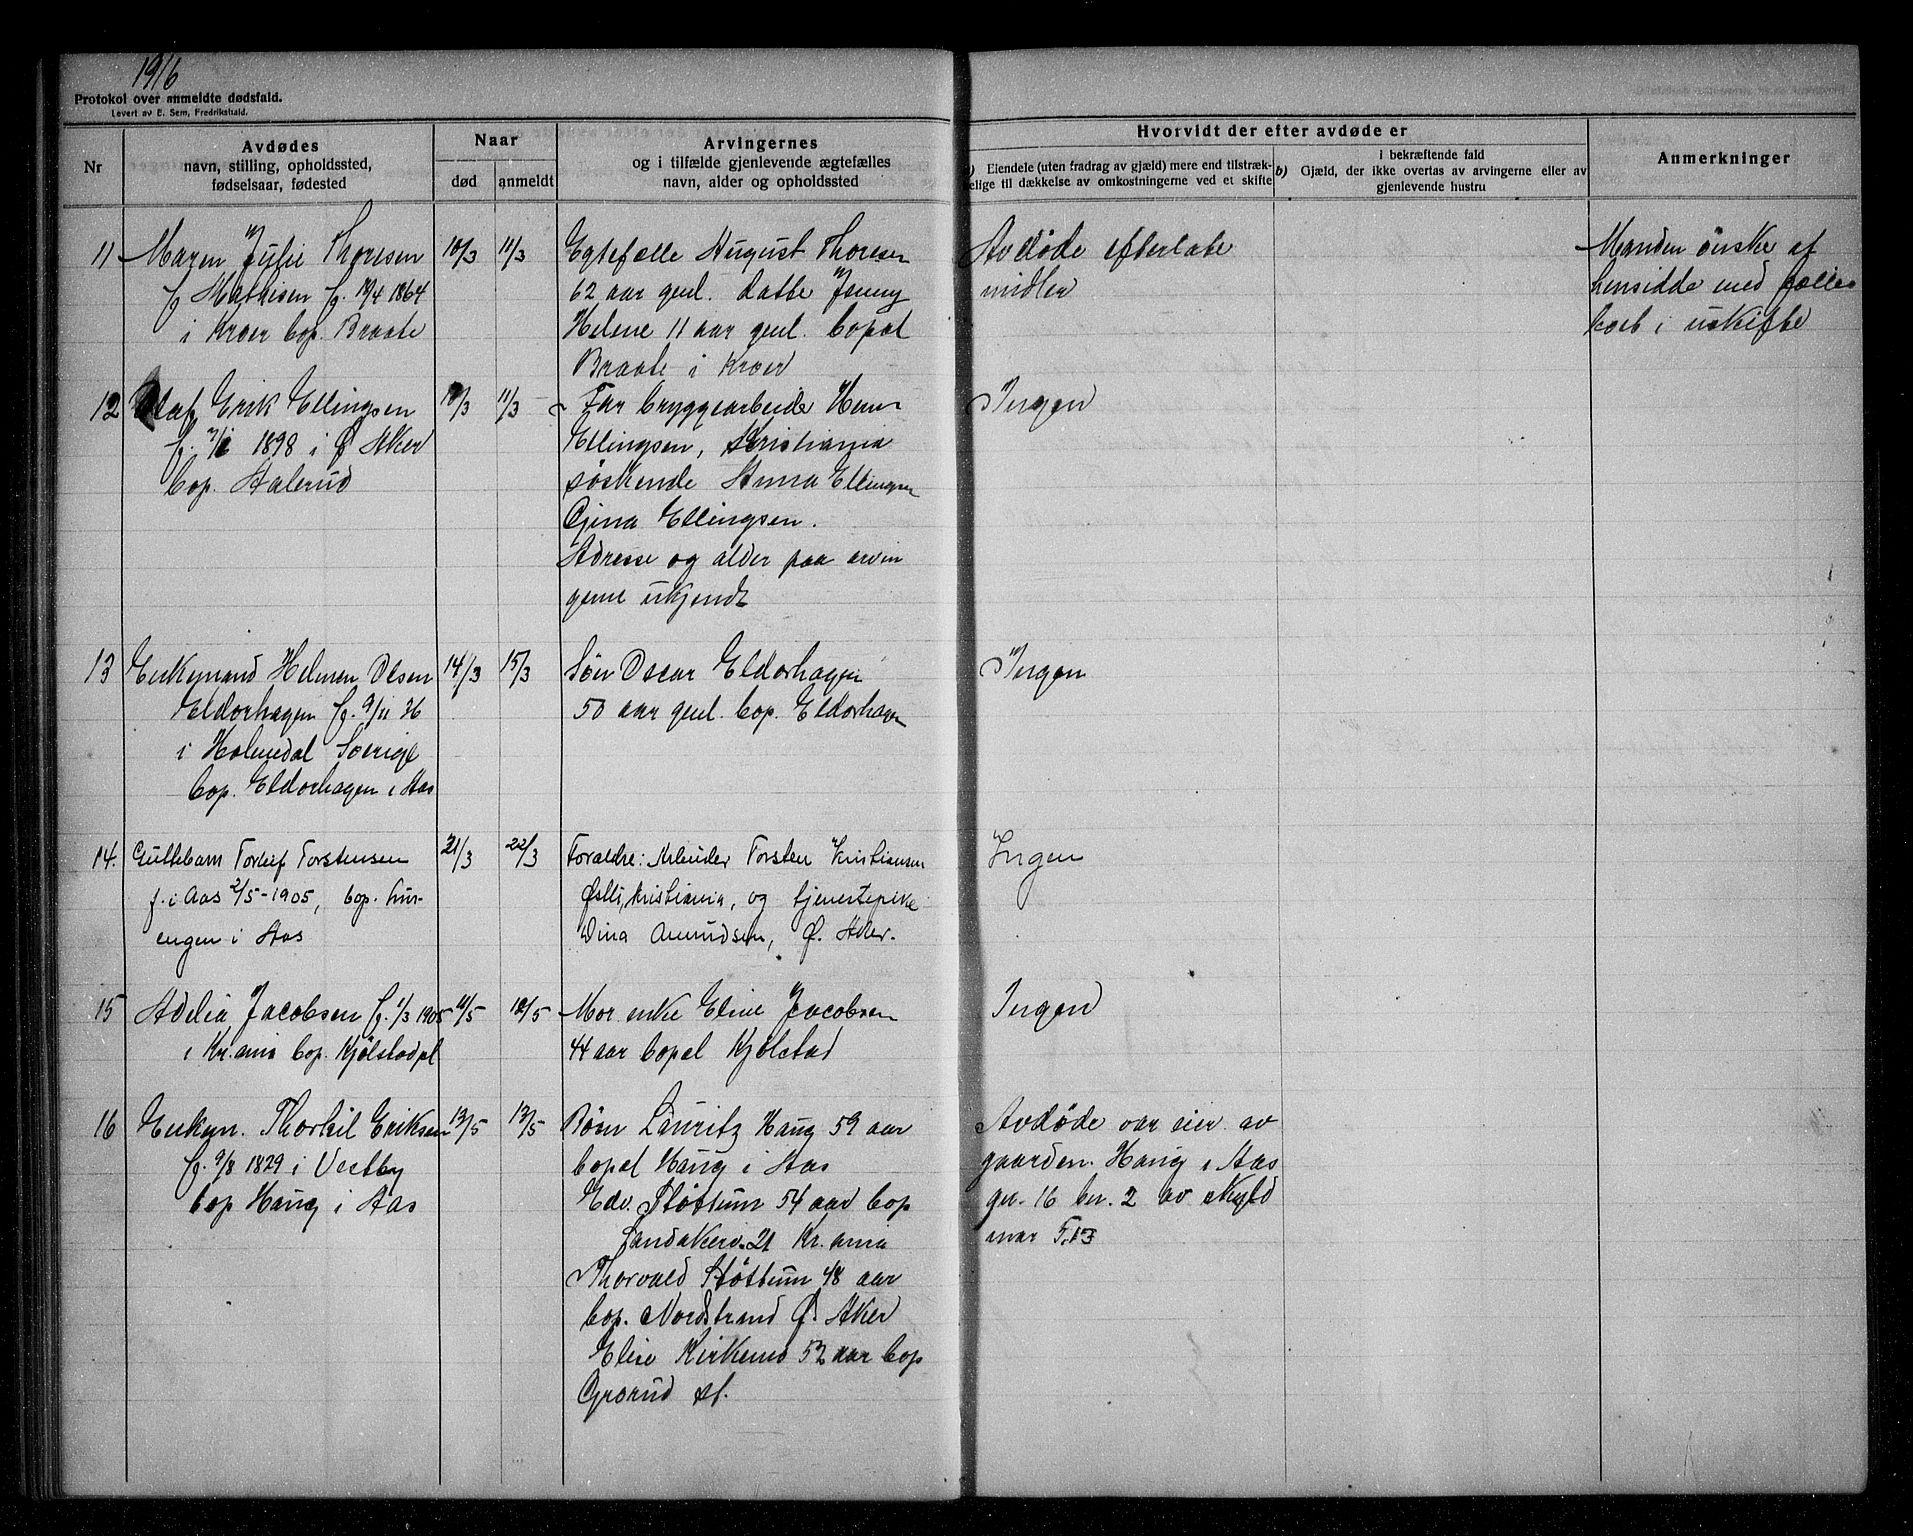 1916
Protokol over anmeldte dødsfald.
Levert av E. Sem, Fredrikshald.
Nr
Avdødes
navn, stilling, opholdssted,
fødselsaar, fødested
Naar
død
anmeldt
Arvingernes
og i tilfælde gjenlevende ægtefælles
navn, alder og opholdssted
Hvorvidt der efter avdøde er
Eiendele (uten fradrag av gjæld) mere end tilstræk-
elige til dækkelse av omkostningerne ved et skifte
I bekræftende fald
b) Gjæld, der ikke overtas av arvingerne eller av
gjenlevende hustru
Anmerkninger
11
Maren Julie Thoresen
f Mathisen f. 1864
i Kroer bop. Braate
10/3
11/3
Egtefælle August Thoresen
62 aar gml. datte Jenny
Helene 11 aar gml. bopæl
Braate i Kroer
Avdøde efterlate
midler
Manden ønske at
hensidde med fælles
boet i uskifte
12
Olaf Erik Ellingsen
f. 1898 i Ø Aker
bop. Aalerud
10/3
11/3
Far bryggearbeider
Ellingsen, Kristiania
søskende Anna Ellingsen
Gina Ellingsen.
Adresse og alder paa arvin
gerne ukjendt
Ingen
13
Enkemand Helmen Olsen
Eldorhagen f. 9/11 26
i Holmedal Sverige
bop. Eldorhagen i Aas
14/3
15/3
Søn Oscar Eldorhagen
50 aar gml. bop. Eldorhagen
Ingen
14.
Guttebarn Torleif Torstensen
f. i Aas 2/5-1905, bop.
engen i Aas
21/3
22/3
Foraldre: Arbeider Torsten Kristiansen
Kristiania, og tjenestepike
Dina Amundsen, Ø. Aker.
Ingen
15
Adelia Jacobsen f. 1/3 1905
i Kr.ania bop. Kjølstadpl
11/5
12/5
Mor enke Eline Jacobsen
44 aar bopel Kjølstad
Ingen
16
Enkem. Thorkil Eriksen
f. 9/8 1829 i Vestby
bop Haug i Aas
13/5
13/5
Børn Lauritz Haug 59 aar
bopel Haug i Aas
Edv. Støttum 54 aar bop
Landakerv. 21 Kr.ania
Thorvald Støttum 48 aar
bop. Nordstrand Ø. Aker
Elise Kirkerud 52 aar bop
Grorud st.
Avdøde var eier av
gaarden Haug i Aas
gr. 16 br. 2 av skyld
mar 5.13